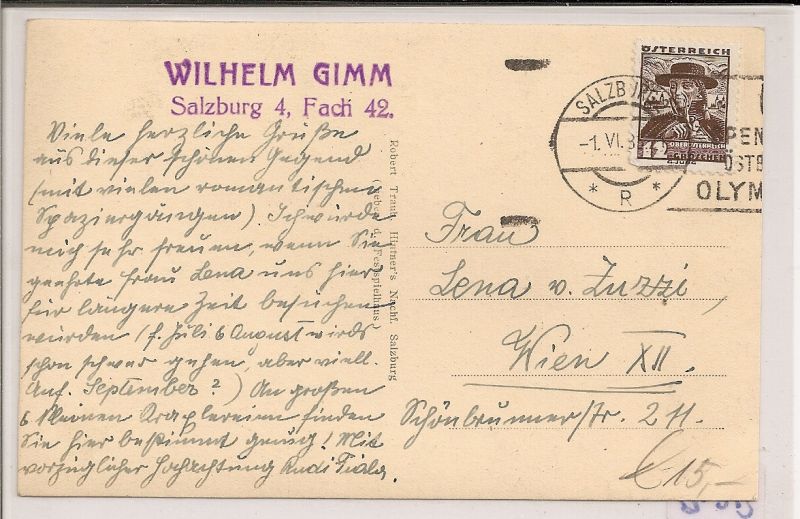 WILHELM GIMM
Salzburg 4, Fach 42.
Viele herzliche Grüße
aus dieser schönen Gegend
(mit vielen romantischen
Spaziergängen). Ich würde
mich sehr freuen, wenn Sie
geehrte Frau Lena uns hier
für längere Zeit besuchen
würden (f. Juli & August wirds
schon schwer gehen, aber viell.
Anf. September?) An großen
& kleinen Kraxlereien finden
Sie hier bestimmt genug! Mit
vorzüglicher Hochachtung Rudi Fiala.
Robert Traut, Hintner's Nachf. Salzburg
(neben d. Festspielhaus)
ÖSTERREICH
12
GROSCHEN
SALZBURG
-1. VI. 3
* R *
PEN
ÖSTE
OLYM
Frau
Lena v. Zuzzi,
Wien XII.
Schönbrunnerstr. 211.
€ 15,-